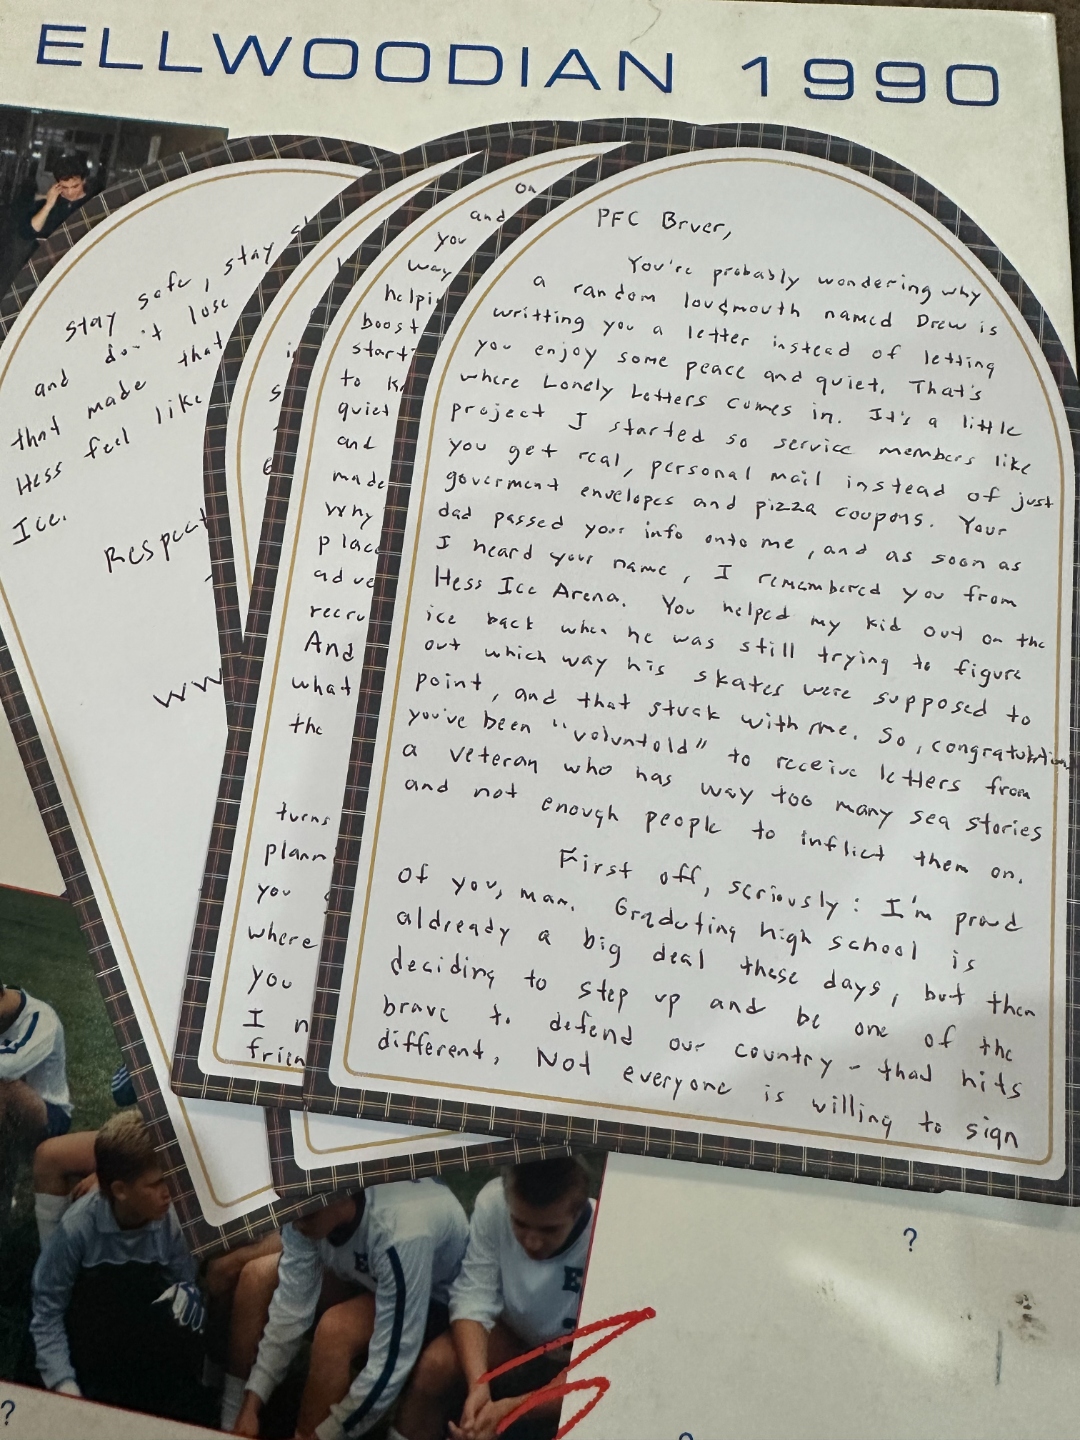 ELLWOODIAN 1990
stay safe, stay
and don't lose
that made that
Hess feel like
Ice.
Respect
ww
on
and
you
way
helpi
boost
start
to k
quiet
and
made
why
plac
adve
recru
And
what
the
turns
plann
you
where
you
I n
frien
PFC Bruer,
You're probably wondering why
a random loudmouth named Drew is
writting you a letter instead of letting
you enjoy some peace and quiet. That's
where Lonely Letters comes in. It's a little
project I started so service members like
you get real, personal mail instead of just
goverment envelopes and pizza coupons. Your
dad passed your info onto me, and as soon as
I heard your name, I remembered you from
Hess Ice Arena. You helped my kid out on the
ice back when he was still trying to figure
out which way his skates were supposed to
point, and that stuck with me. So, congratulations
you've been "voluntold" to receive letters from
a veteran who has way too many sea stories
and not enough people to inflict them on.
First off, seriously: I'm proud
of you, man. Graduting high school is
aldready a big deal these days, but then
deciding to step up and be one of the
brave to defend our country - thad hits
different, Not everyone is willing to sign
?
?
?